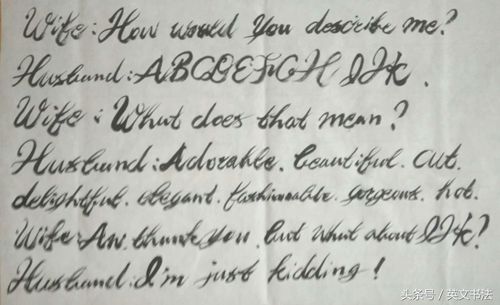 Wife: How would you describe me?
Husband: ABCDEFGH IJK.
Wife: What does that mean?
Husband: Adorable. beautiful. cut.
delightful. elegant. fashionable. gorgeous. hot.
Wife: Aw thank you. but what about IJK?
Husband: I'm just kidding!
头条号 / 英文书法